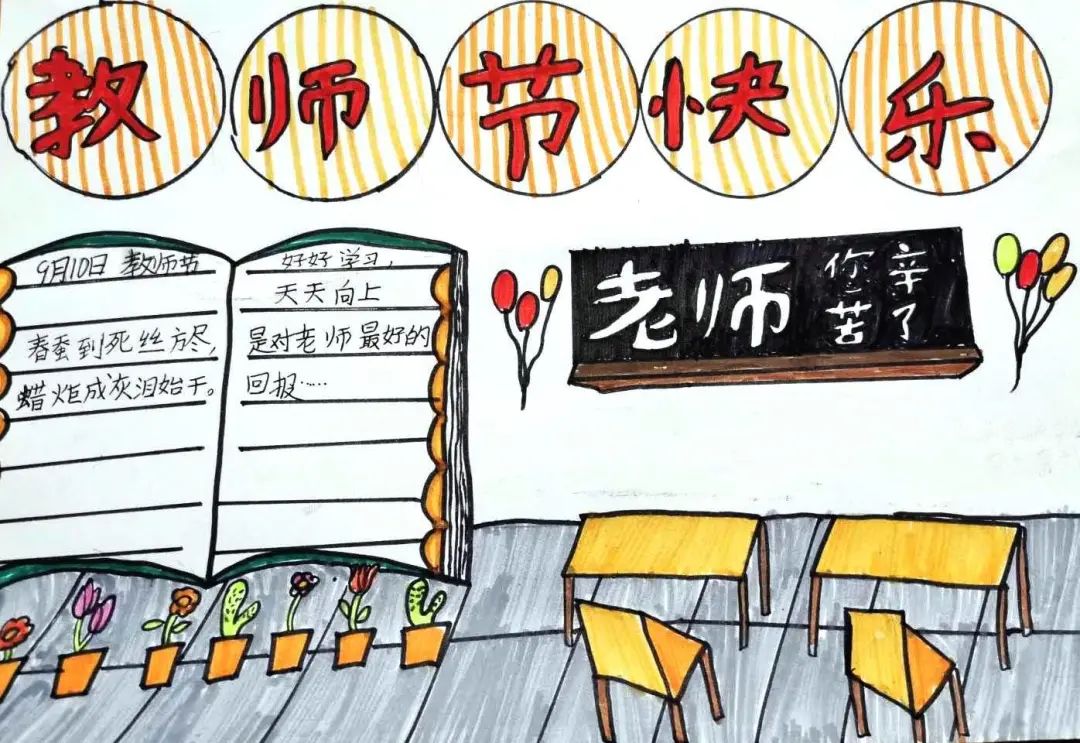 教师节快乐
9月10日 教师节
春蚕到死丝方尽,
蜡炬成灰泪始干。
好好学习,
天天向上
是对老师最好的
回报……
老师
你辛
苦了